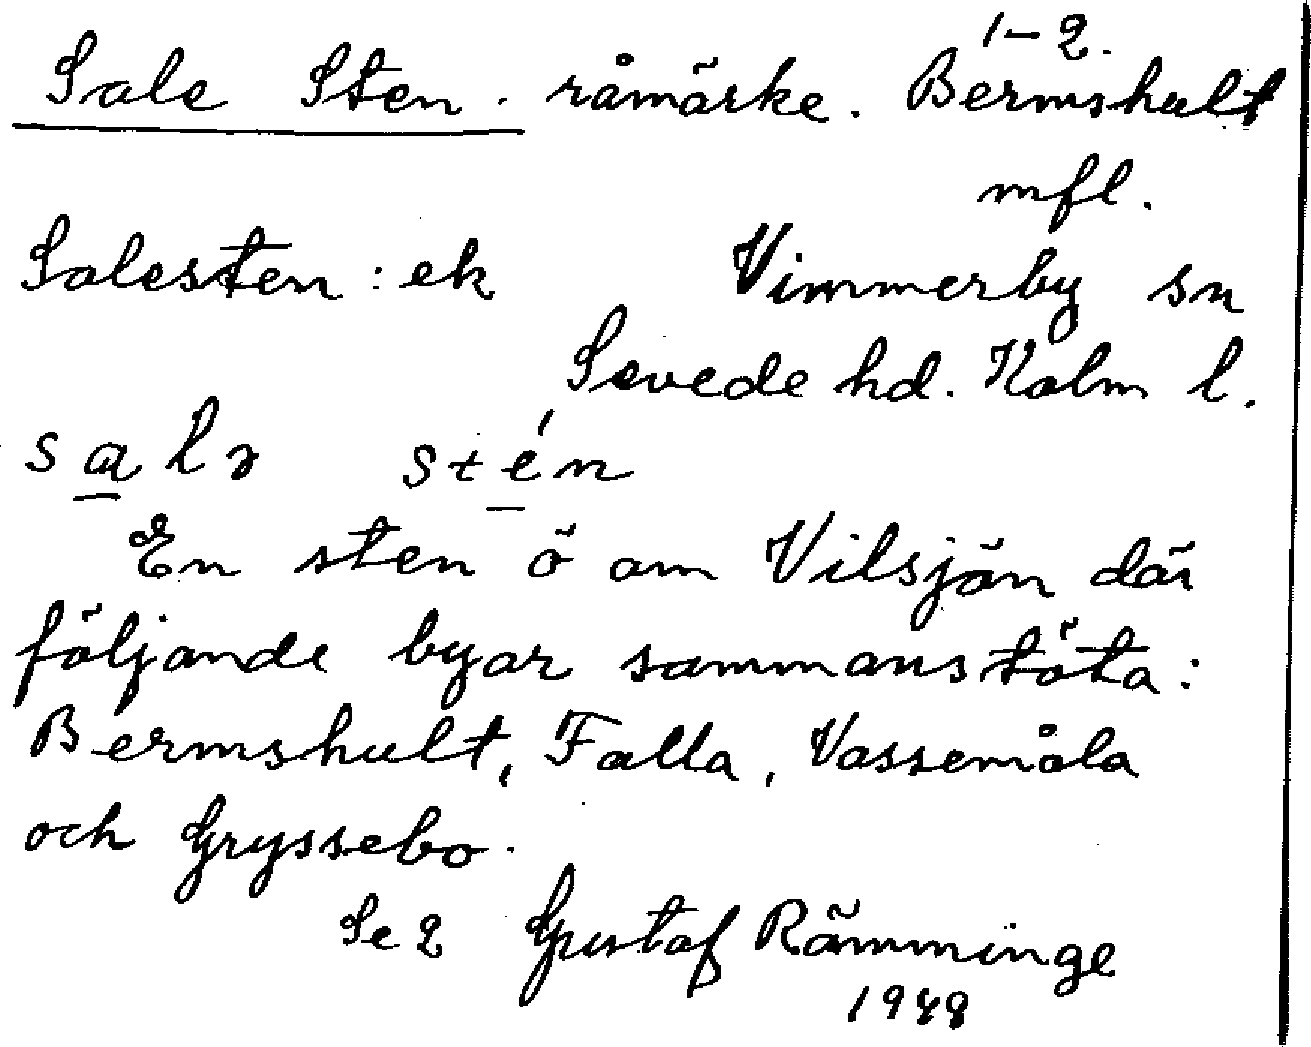 1-2.
Sale Sten. råmärke. Bermshult
mfl.
Salesten: ek Vimmerby sn
Sevede hd. Kalm l.
salə stén
En sten ö om Vilsjön där
följande byar sammanstöta:
Bermshult, Falla, Vassemåla
och Gryssebo.
Se 2 Gustaf Rämminge
1948